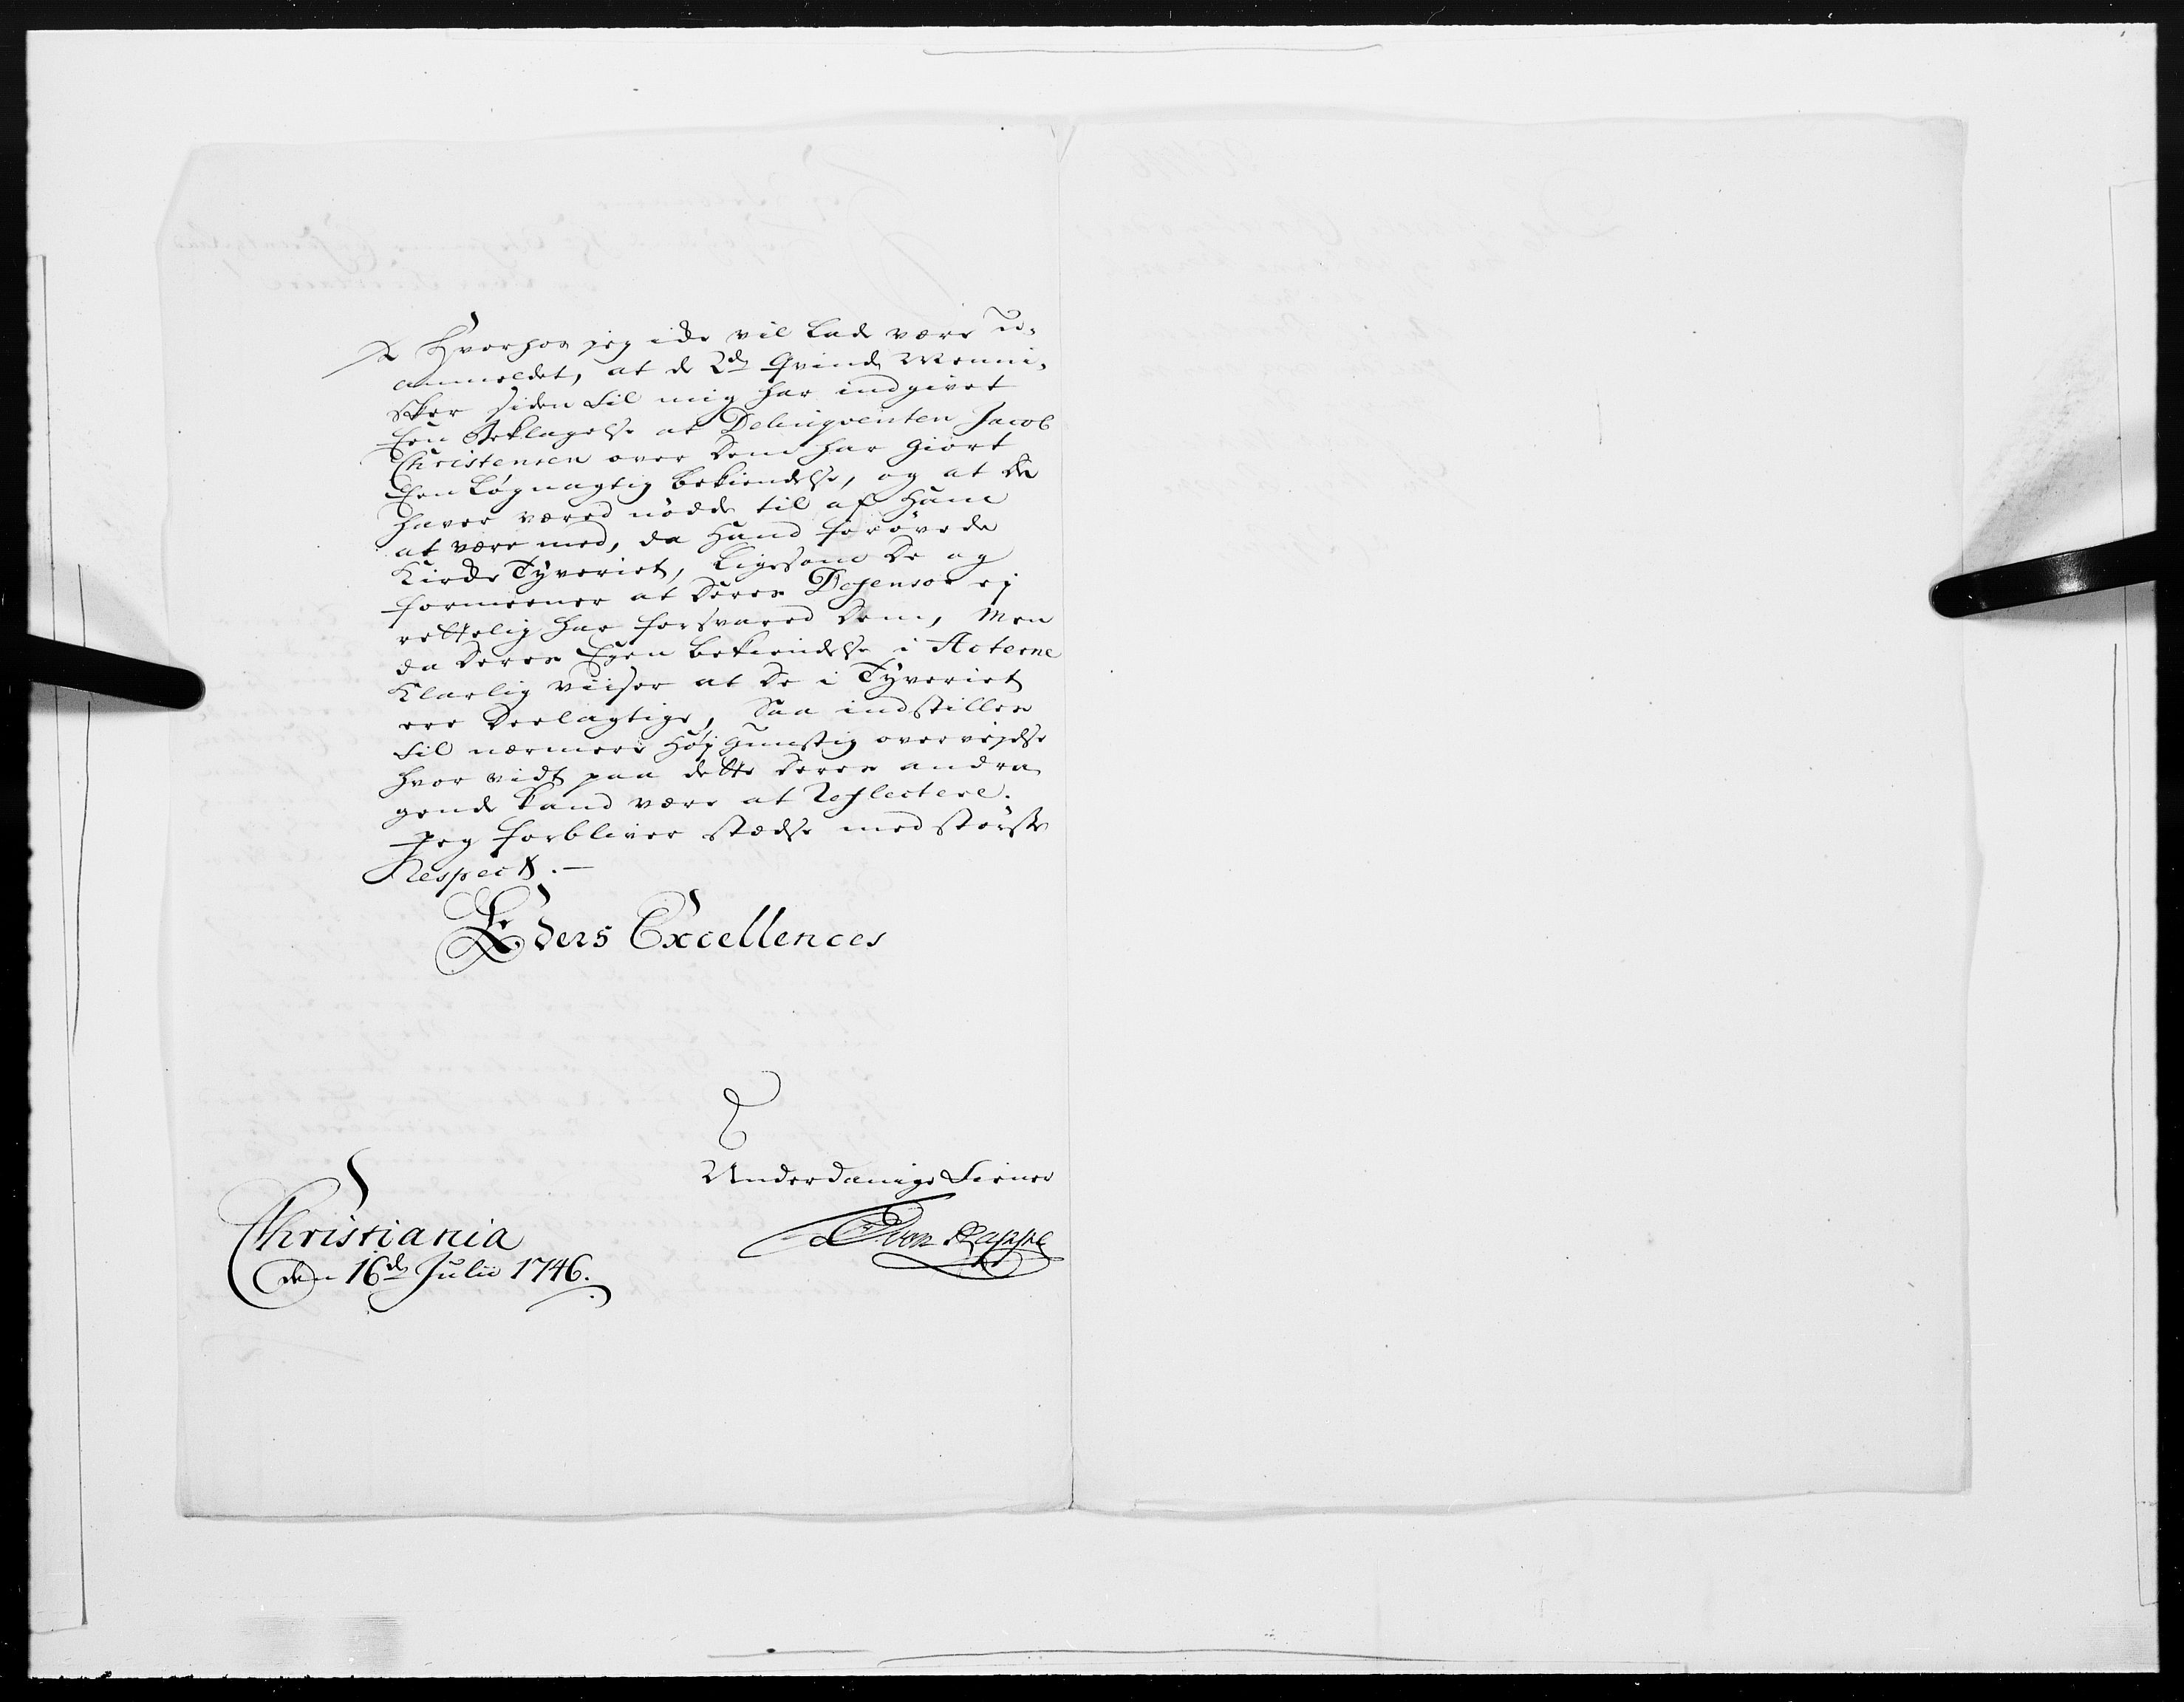 Hvorhos jeg icke vil lade være u-
anmeldet, at de 2de Qvinde Menni-
sker siden til mig har indgivet
Een Beklagelse at Delinqventen Jacob
Christensen over dem har giort
Een løgnagtig bekiendelse, og at de
haver været nødde til af Ham
at være med, da Hand forøvede
Kircke Tyveriet, ligesom de og
formeener at deres Defensor ej
rettelig har forsvaret dem, Men
da deres Egen bekiendelse i Acterne
Klarlig viiser at de i Tyveriet
ere deelagtige, Saa indstilles
til nærmere Høj gunstig overvejelse
hvor vidt paa dette deres andra-
gende kand være at Reflectere.
Jeg forbliver stædse med største
Respect.-
Eders Excellences
Underdanige Tiener
von Rappe
Christiania
den 16de Julii 1746.